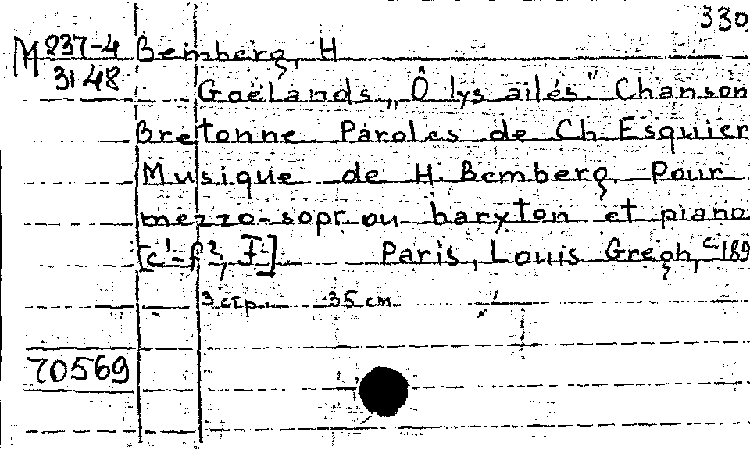 330
M 937-4 Bemberg, H
31 48 Goëlands „Ô lys ailés" Chanson
Bretonne Paroles de Ch Esquier
Musique de H. Bemberg Pour
mezzo-sopr ou baryton et piano
[c¹-f², F] Paris, Louis Gregh, c 189
3 стр. 35 см
70569